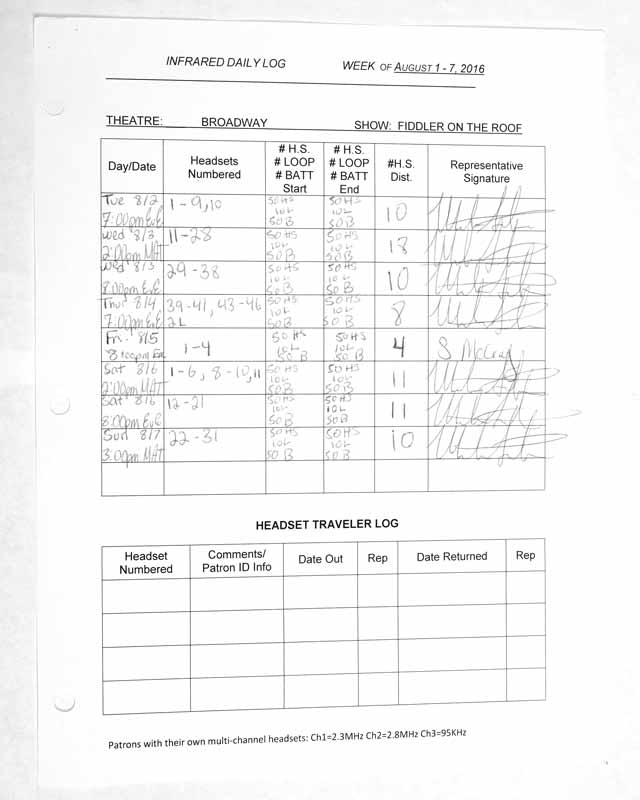 INFRARED DAILY LOG WEEK OF AUGUST 1 - 7, 2016
THEATRE: BROADWAY SHOW: FIDDLER ON THE ROOF
Day/Date Headsets Numbered # H.S. # LOOP # BATT Start # H.S. # LOOP # BATT End #H.S. Dist. Representative Signature
Tue 8/2 7:00pm EvE 1-9,10 50 HS 10L 50B 50HS 10L 50B 10
wed 8/3 2:00pm MAT 11-28 50 HS 10L 50B 50HS 10L 50B 18
Wed 8/3 8:00pm EvE 29-38 50HS 10L 50B 50HS 10L 50B 10
Thur 8/4 7:00pm EvE 39-41, 43-46 2L 50HS 10L 50B 50HS 10L 50B 8
Fri. 8/5 8:00pm Eve 1-4 50 HS 10L 50 B 50 HS 10L 50 B 4
Sat 8/6 2:00pm MAT 1-6, 8-10,11 50HS 10L 50B 50HS 10L 50B 11
Sat 8/6 8:00pm EvE 12-21 50HS 10L 50B 50HS 10L 50B 11
Sun 8/7 3:00pm MAT 22-31 50HS 10L 50B 50HS 10L 50B 10
HEADSET TRAVELER LOG
Headset Numbered Comments/ Patron ID Info Date Out Rep Date Returned Rep
Patrons with their own multi-channel headsets: Ch1=2.3MHz Ch2=2.8MHz Ch3=95KHz